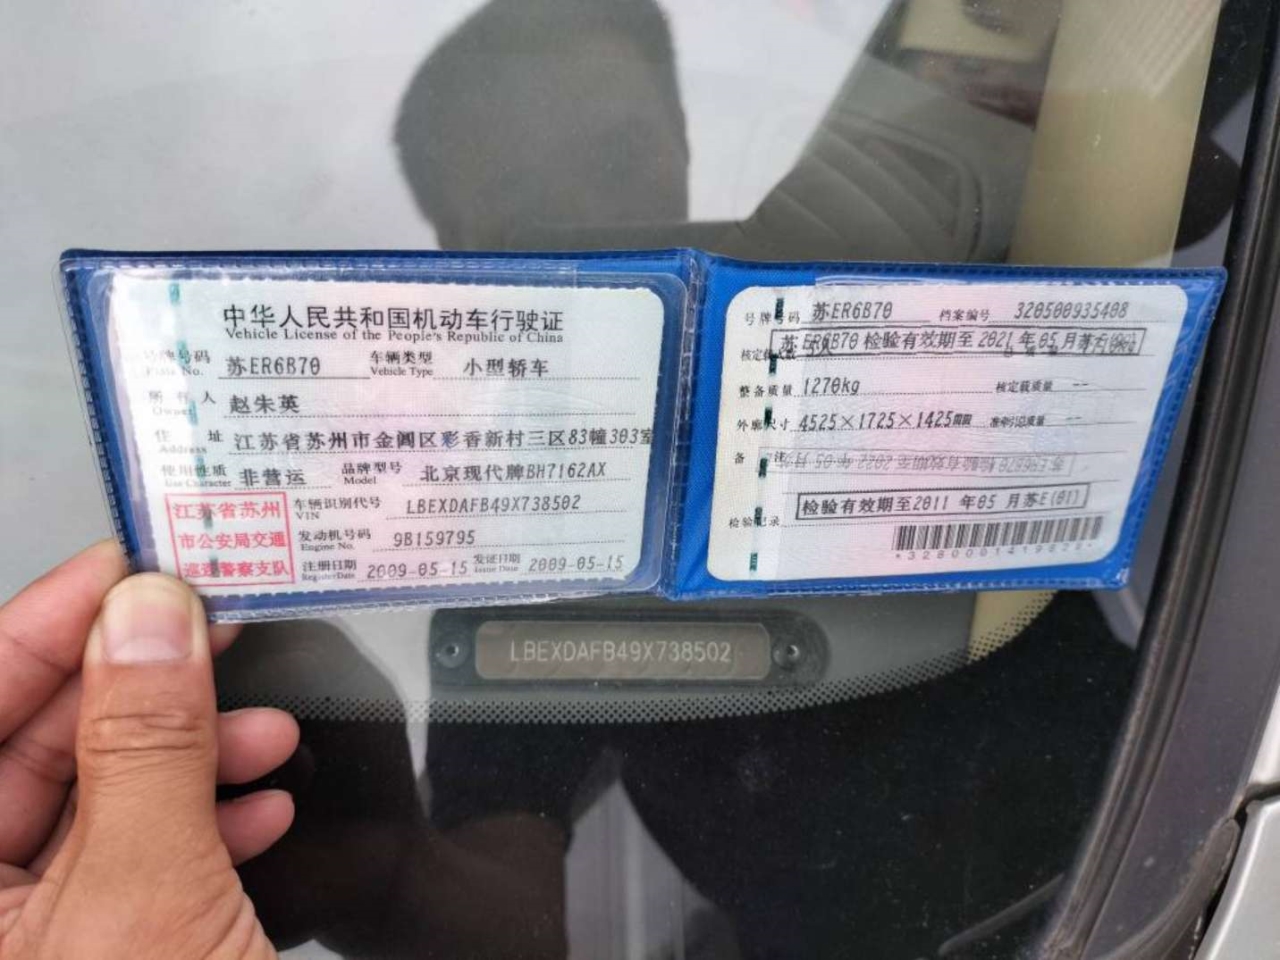 中华人民共和国机动车行驶证
Vehicle License of the People's Republic of China
号牌号码 苏ER6B70 车辆类型 小型轿车
Plate No. Vehicle Type
所有人 赵朱英
Owner
住址 江苏省苏州市金阊区彩香新村三区83幢303室
Address
使用性质 非营运 品牌型号 北京现代牌BH7162AX
Use Character Model
江苏省苏州
市公安局交通
巡逻警察支队
车辆识别代号 LBEXDAFB49X738502
VIN
发动机号码 9B159795
Engine No.
注册日期 2009-05-15 发证日期 2009-05-15
Register Date Issue Date
号牌号码 苏ER6B70 档案编号 320500935408
苏ER6B70 检验有效期至 2021 年 05 月
核定载人数 5人
整备质量 1270kg 核定载质量 --
外廓尺寸 4525×1725×1425 准牵引总质量 --
备注
苏ER6B70 检验有效期至 2022 年 05 月
检验记录 检验有效期至2011 年05 月苏E(01)
LBEXDAFB49X738502